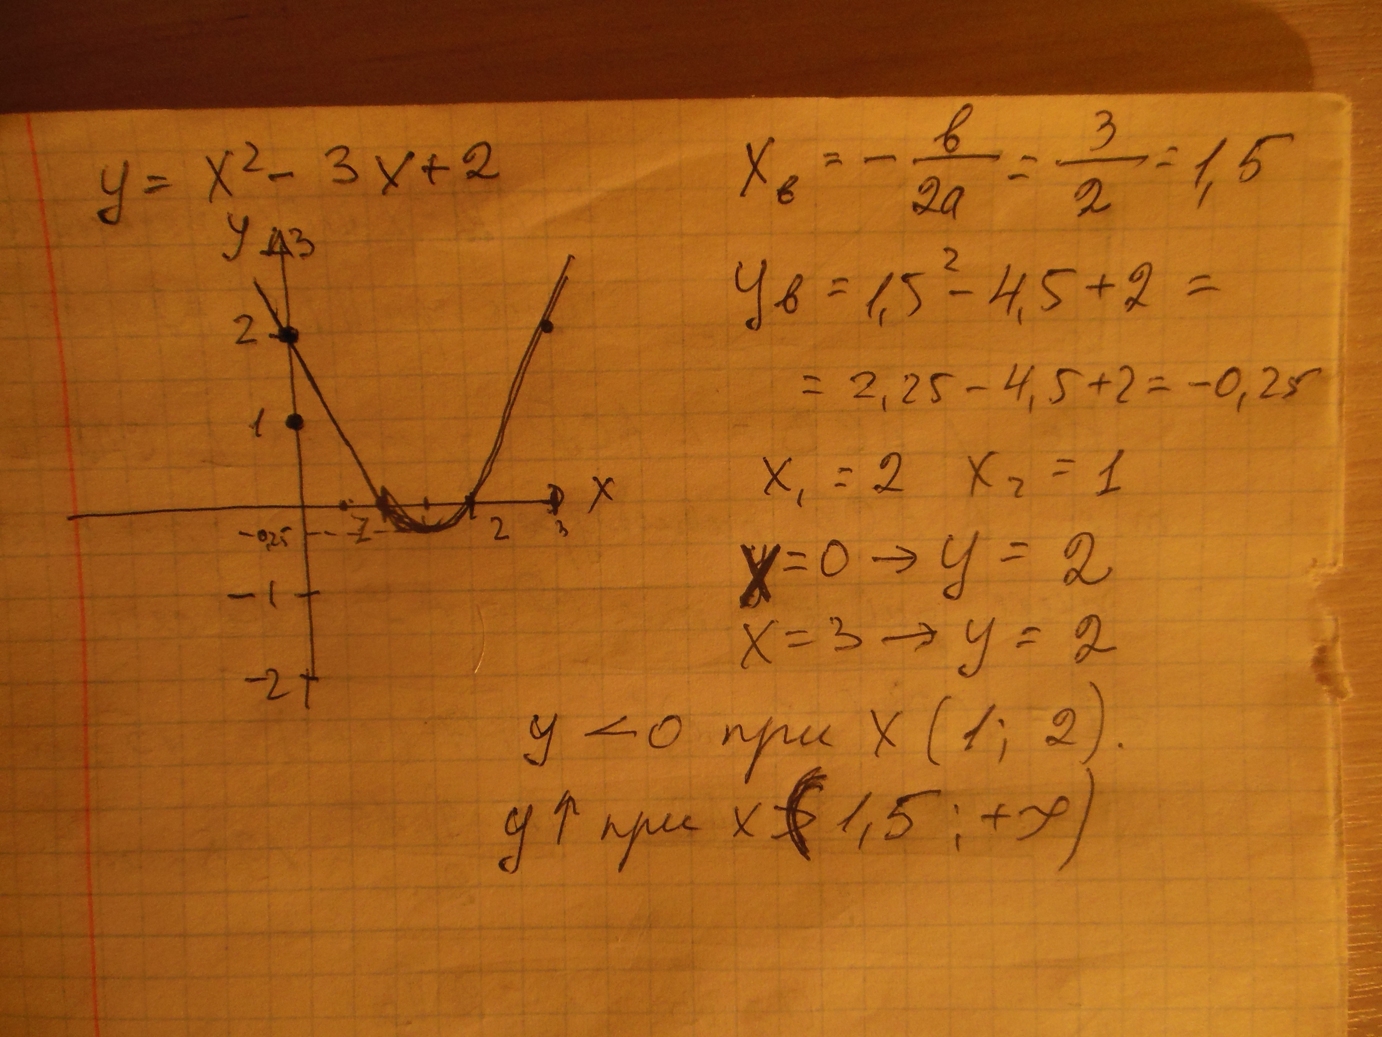 y = x² - 3x + 2
y 3
2
1
x
-0,25 1 2 3
-1
-2
xв = - в/2a = 3/2 = 1,5
yв = 1,5² - 4,5 + 2 =
= 2,25 - 4,5 + 2 = -0,25
x₁ = 2 x₂ = 1
x = 0 → y = 2
x = 3 → y = 2
y < 0 при x (1; 2).
y↑ при x (1,5; +∞)